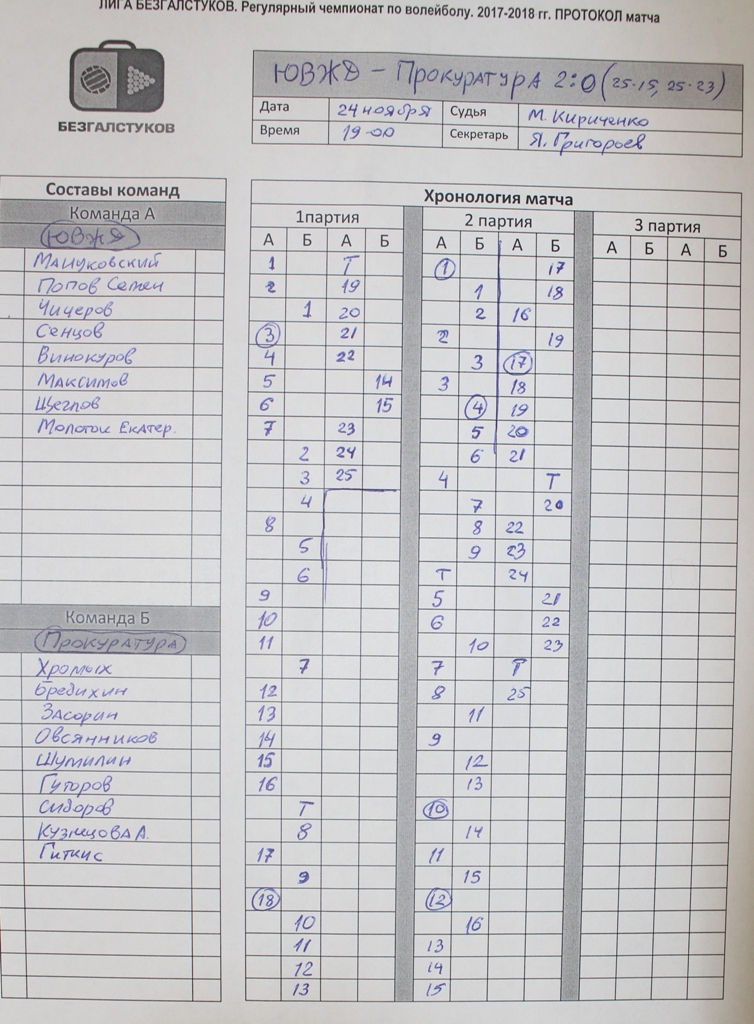 ЛИГА БЕЗГАЛСТУКОВ. Регулярный чемпионат по волейболу. 2017-2018 гг. ПРОТОКОЛ матча
БЕЗГАЛСТУКОВ
ЮВЖД - Прокуратура 2:0 (25-15, 25-23)
Дата 24 ноября Судья М. Кириченко
Время 19-00 Секретарь Я. Григорьев
Составы команд
Команда А
ЮВЖД
Мануковский
Попов Семен
Чичеров
Сенцов
Винокуров
Максимов
Щеглов
Молоток Екатер.
Команда Б
Прокуратура
Хромых
Бредихин
Засорин
Овсянников
Шумилин
Гуторов
Сидоров
Кузнецова А.
Гиткис
Хронология матча
1партия 2 партия 3 партия
А Б А Б А Б А Б А Б А Б
1 Т 1 17
2 19 1 18
1 20 2 16
3 21 2 19
4 22 3 17
5 14 3 18
6 15 4 19
7 23 5 20
2 24 6 21
3 25 4 Т
4 7 20
8 8 22
5 9 23
6 Т 24
9 5 21
10 6 22
11 10 23
7 7 Т
12 8 25
13 11
14 9
15 12
16 13
Т 10
8 14
17 11
9 15
18 12
10 16
11 13
12 14
13 15